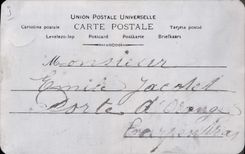 UNION POSTALE UNIVERSELLE
Cartolina postale CARTE POSTALE Tarjeta postal
Levelezo-lap Postcard Postkarte Briefkaart
Monsieur
Emile Jacotet
Porte d'Orange
Carpentras